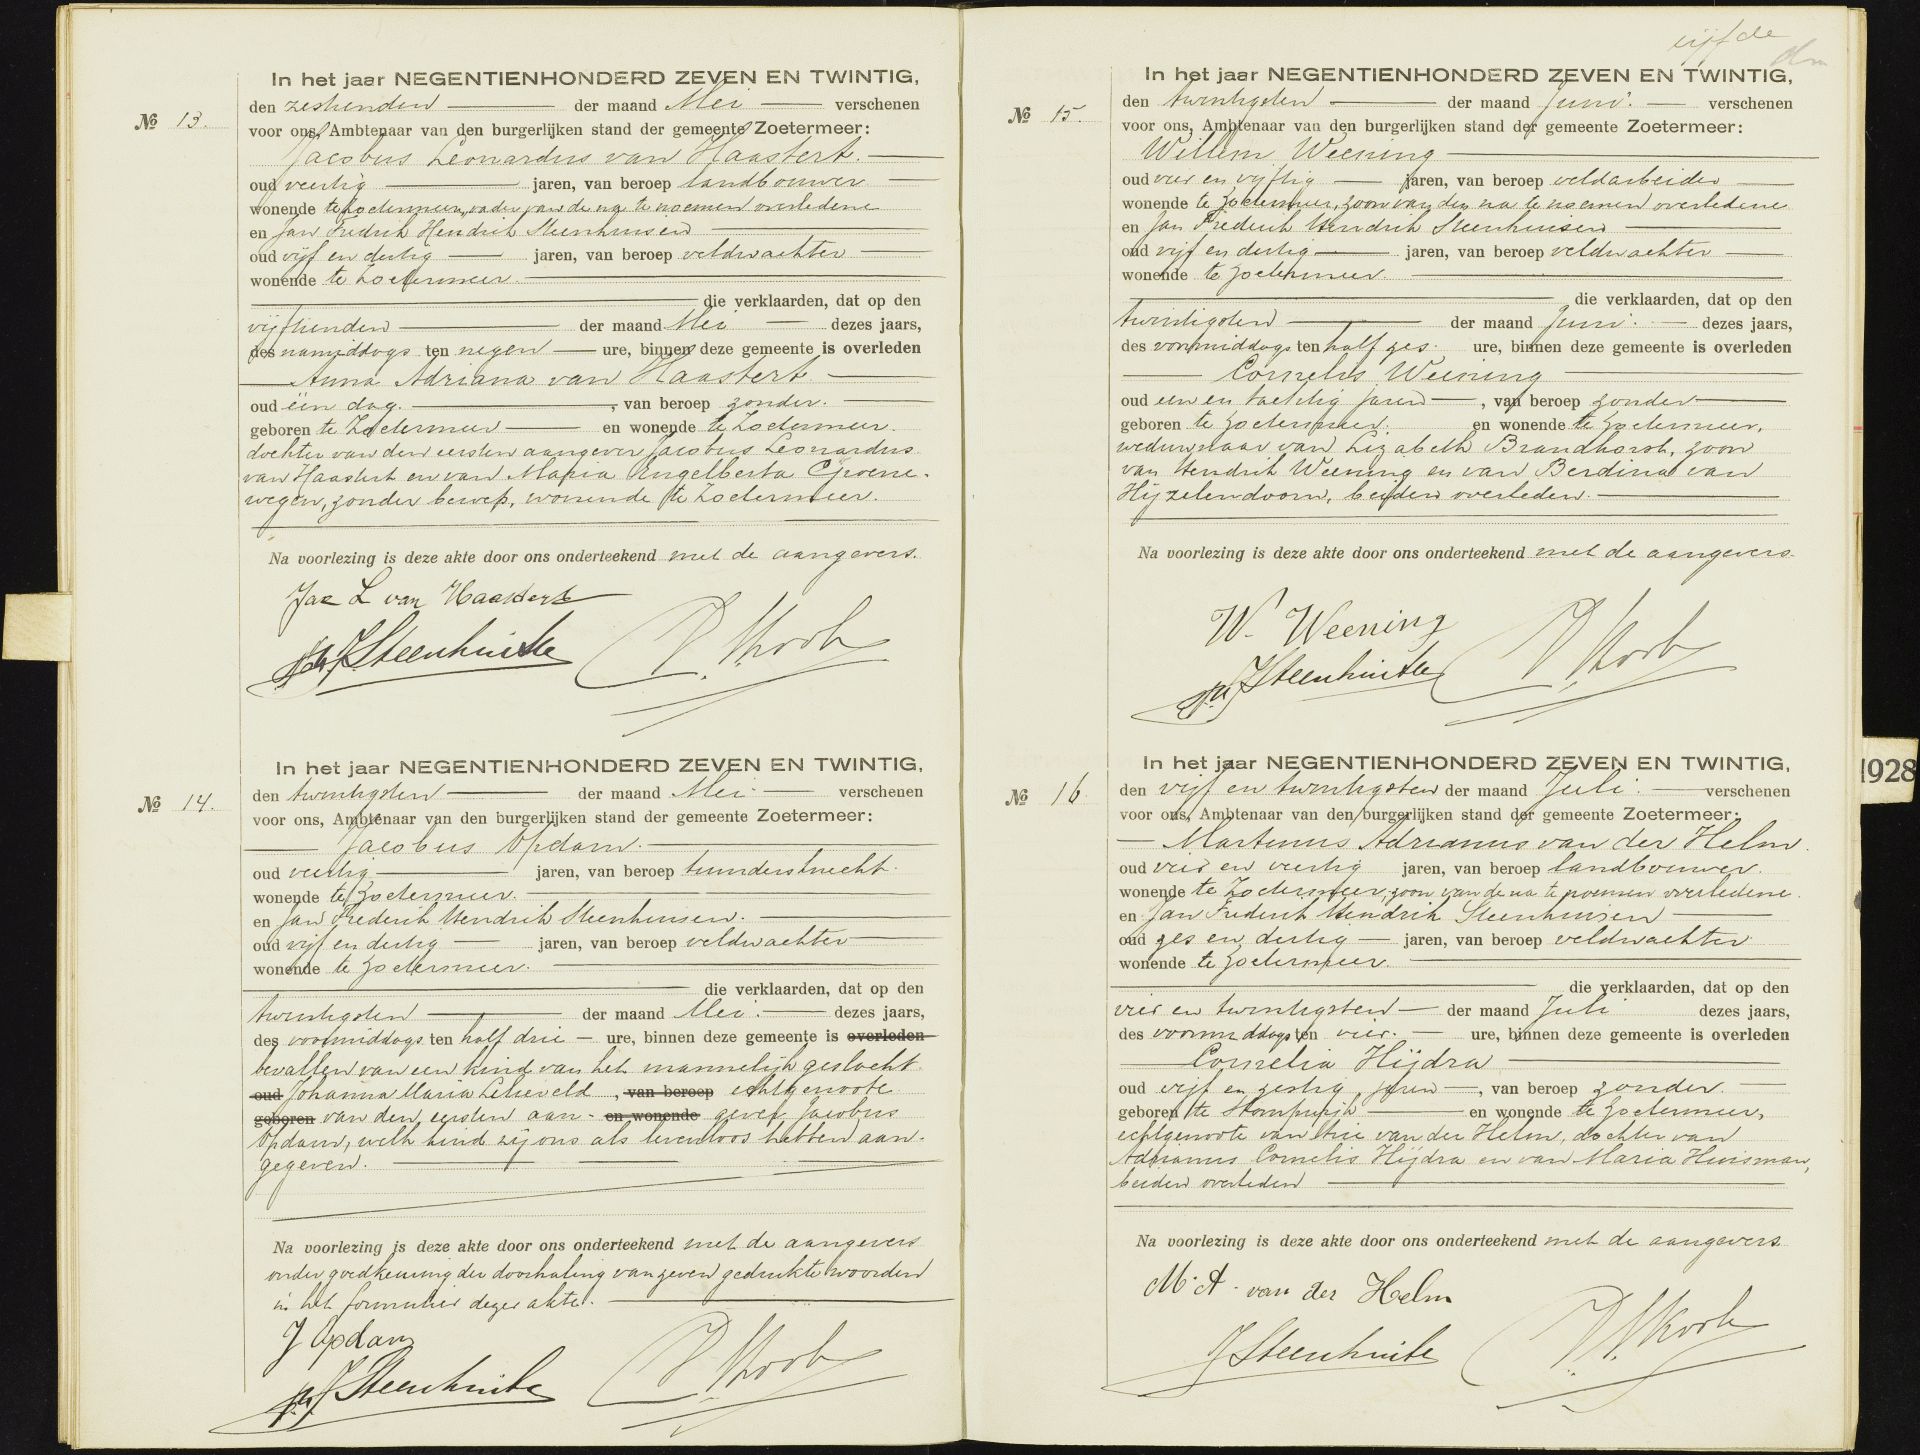 In het jaar NEGENTIENHONDERD ZEVEN EN TWINTIG,
№ 13. den zestienden der maand Mei verschenen
voor ons, Ambtenaar van den burgerlijken stand der gemeente Zoetermeer:
Jacobus Leonardus van Haastert.
oud veertig jaren, van beroep landbouwer
wonende te Zoetermeer, vader van de na te noemen overledene
en Jan Fredrik Hendrik Steenhuisen
oud vijf en dertig jaren, van beroep veldwachter
wonende te Zoetermeer.
die verklaarden, dat op den
vijftienden der maand Mei dezes jaars,
des namiddags ten negen ure, binnen deze gemeente is overleden
Anna Adriana van Haastert
oud één dag. , van beroep zonder.
geboren te Zoetermeer en wonende te Zoetermeer.
dochter van den eersten aangever Jacobus Leonardus
van Haastert en van Maria Engelberta Groene-
wegen, zonder beroep, wonende te Zoetermeer.
Na voorlezing is deze akte door ons onderteekend met de aangevers.
Jac L van Haastert
JFH Steenhuise
In het jaar NEGENTIENHONDERD ZEVEN EN TWINTIG,
№ 14. den twintigsten der maand Mei. verschenen
voor ons, Ambtenaar van den burgerlijken stand der gemeente Zoetermeer:
Jacobus Opdam.
oud veertig jaren, van beroep tuindersknecht.
wonende te Zoetermeer.
en Jan Frederik Hendrik Steenhuisen.
oud vijf en dertig jaren, van beroep veldwachter
wonende te Zoetermeer.
die verklaarden, dat op den
twintigsten der maand Mei. dezes jaars,
des voormiddags ten half drie ure, binnen deze gemeente is overleden
bevallen van een kind van het mannelijk geslacht
oud Johanna Maria Lelieveld , van beroep echtgenoote
geboren van den eersten aan- en wonende gever Jacobus
Opdam, welk kind zij ons als levenloos hebben aan-
gegeven.
Na voorlezing is deze akte door ons onderteekend met de aangevers
onder goedkeuring der doorhaling van zeven gedrukte woorden
in het formulier dezer akte.
J Opdam
JFH Steenhuise
vijfde
In het jaar NEGENTIENHONDERD ZEVEN EN TWINTIG,
№ 15. den twintigsten der maand Juni. verschenen
voor ons, Ambtenaar van den burgerlijken stand der gemeente Zoetermeer:
Willem Weening
oud vier en vijftig jaren, van beroep veldarbeider
wonende te Zoetermeer, zoon van den na te noemen overledene
en Jan Frederik Hendrik Steenhuisen
oud vijf en dertig jaren, van beroep veldwachter
wonende te Zoetermeer.
die verklaarden, dat op den
twintigsten der maand Juni. dezes jaars,
des voormiddags ten half zes. ure, binnen deze gemeente is overleden
Cornelis Weening
oud een en tachtig jaren , van beroep zonder
geboren te Zoetermeer. en wonende te Zoetermeer,
weduwnaar van Lizabeth Brandhorst, zoon
van Hendrik Weening en van Berdina van
Hijzelendoorn, beiden overleden.
Na voorlezing is deze akte door ons onderteekend met de aangevers.
W. Weening
JFH Steenhuise
In het jaar NEGENTIENHONDERD ZEVEN EN TWINTIG,
№ 16 den vijf en twintigsten der maand Juli. verschenen
voor ons, Ambtenaar van den burgerlijken stand der gemeente Zoetermeer:
Martinus Adrianus van der Helm.
oud vier en veertig jaren, van beroep landbouwer.
wonende te Zoetermeer, zoon van de na te noemen overledene.
en Jan Frederik Hendrik Steenhuisen
oud zes en dertig jaren, van beroep veldwachter
wonende te Zoetermeer.
die verklaarden, dat op den
vier en twintigsten der maand Juli dezes jaars,
des voormiddags ten vier. ure, binnen deze gemeente is overleden
Cornelia Hijdra
oud vijf en zestig jaren , van beroep zonder.
geboren te Stompwijk en wonende te Zoetermeer,
echtgenoote van Arie van der Helm, dochter van
Adrianus Cornelis Hijdra en van Maria Huisman,
beiden overleden
Na voorlezing is deze akte door ons onderteekend met de aangevers.
M. A. van der Helm
J Steenhuise
1928